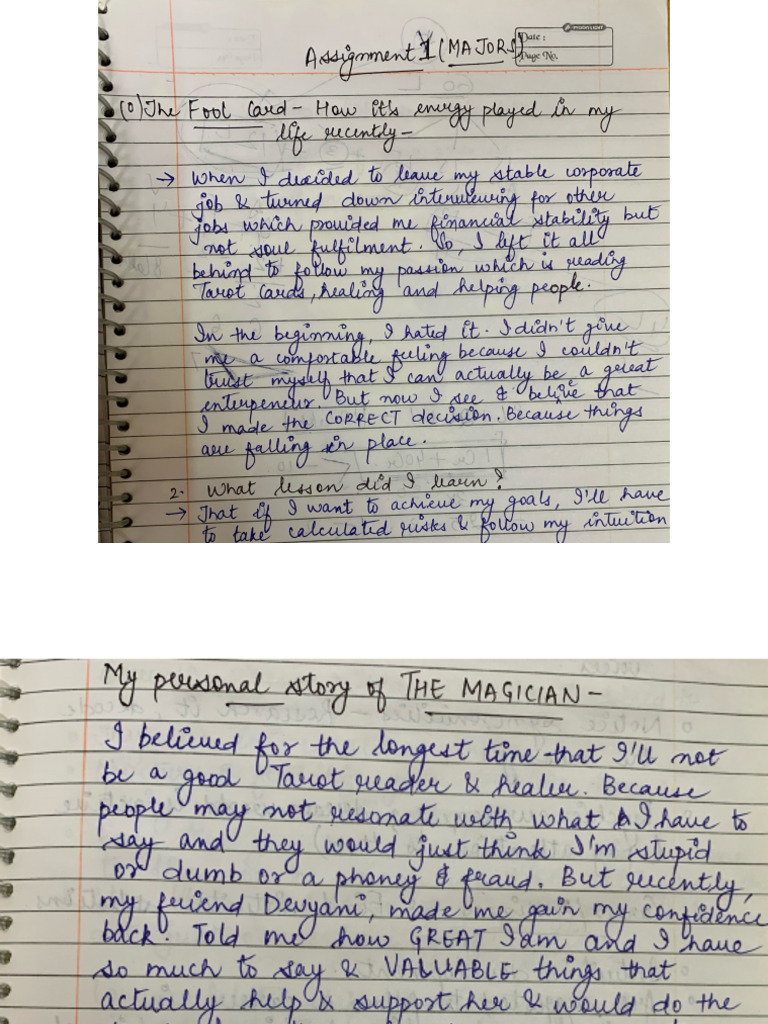 Assignment 1 (MAJORS)
Date :
Page No.
(0) The Fool Card - How it's energy played in my
life recently -
→ When I decided to leave my stable corporate
job & turned down interviewing for other
jobs which provided me financial stability but
not soul fulfilment. So, I left it all
behind to follow my passion which is reading
Tarot Cards, healing and helping people.
In the beginning, I hated it. I didn't give
me a comfortable feeling because I couldn't
trust myself that I can actually be a great
enterpeneur. But now I see & believe that
I made the CORRECT decision. Because things
are falling in place.
2. What lesson did I learn?
→ That if I want to achieve my goals, I'll have
to take calculated risks & follow my intuition
My personal story of THE MAGICIAN -
I believed for the longest time that I'll not
be a good Tarot reader & healer. Because
people may not resonate with what I have to
say and they would just think I'm stupid
or dumb or a phoney & fraud. But recently,
my friend Devyani, made me gain my confidence
back. Told me how GREAT I am and I have
so much to say & VALUABLE things that
actually help & support her & would do the